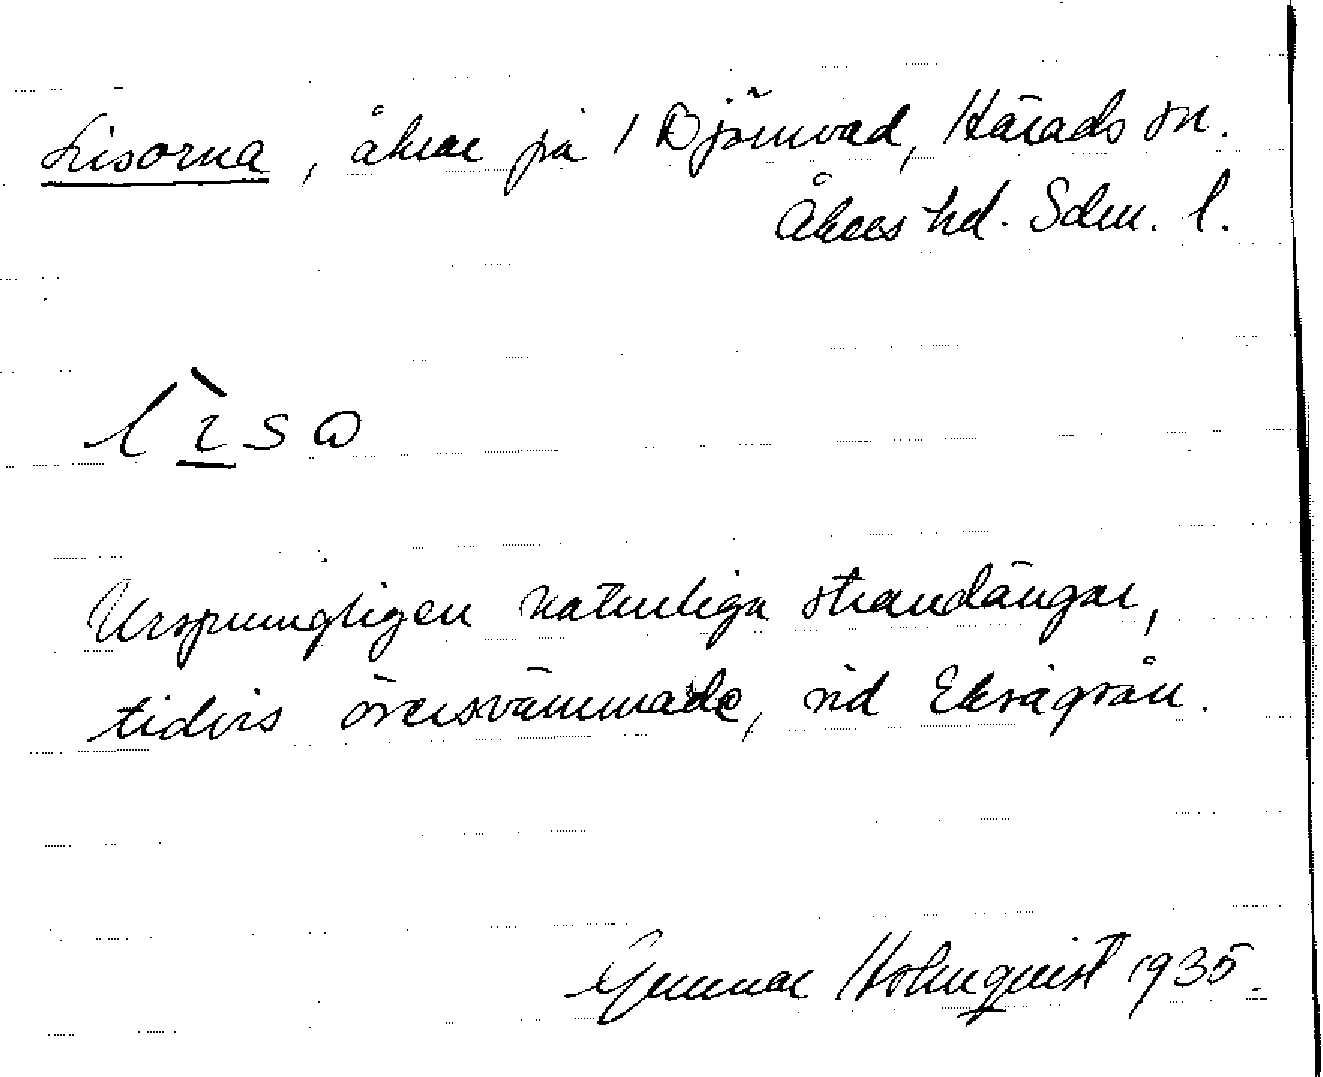 Lisorna, åkrar på 1 Djörnvad, Härads sn.
Åkers hd. Sdm. l.
lìsɷ
Ursprungligen naturliga strandängar,
tidvis översvämmade, vid Eksågsån.
Gunnar Holmquist 1935.